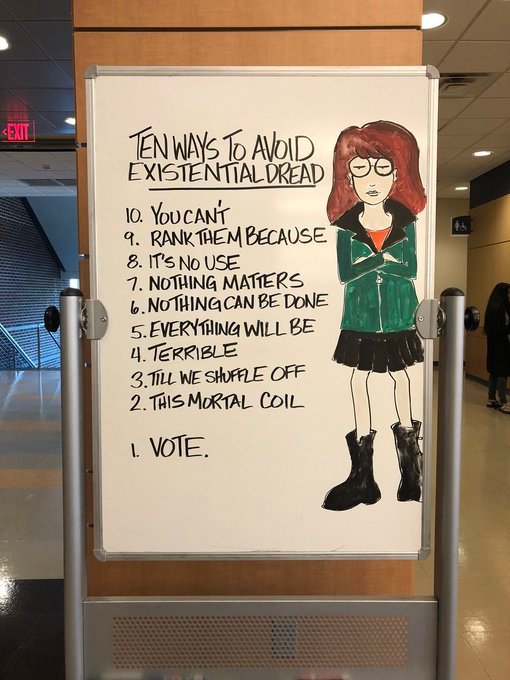 EXIT
TEN WAYS TO AVOID
EXISTENTIAL DREAD
10. YOU CAN'T
9. RANK THEM BECAUSE
8. IT'S NO USE
7. NOTHING MATTERS
6. NOTHING CAN BE DONE
5. EVERYTHING WILL BE
4. TERRIBLE
3. TILL WE SHUFFLE OFF
2. THIS MORTAL COIL
1. VOTE.